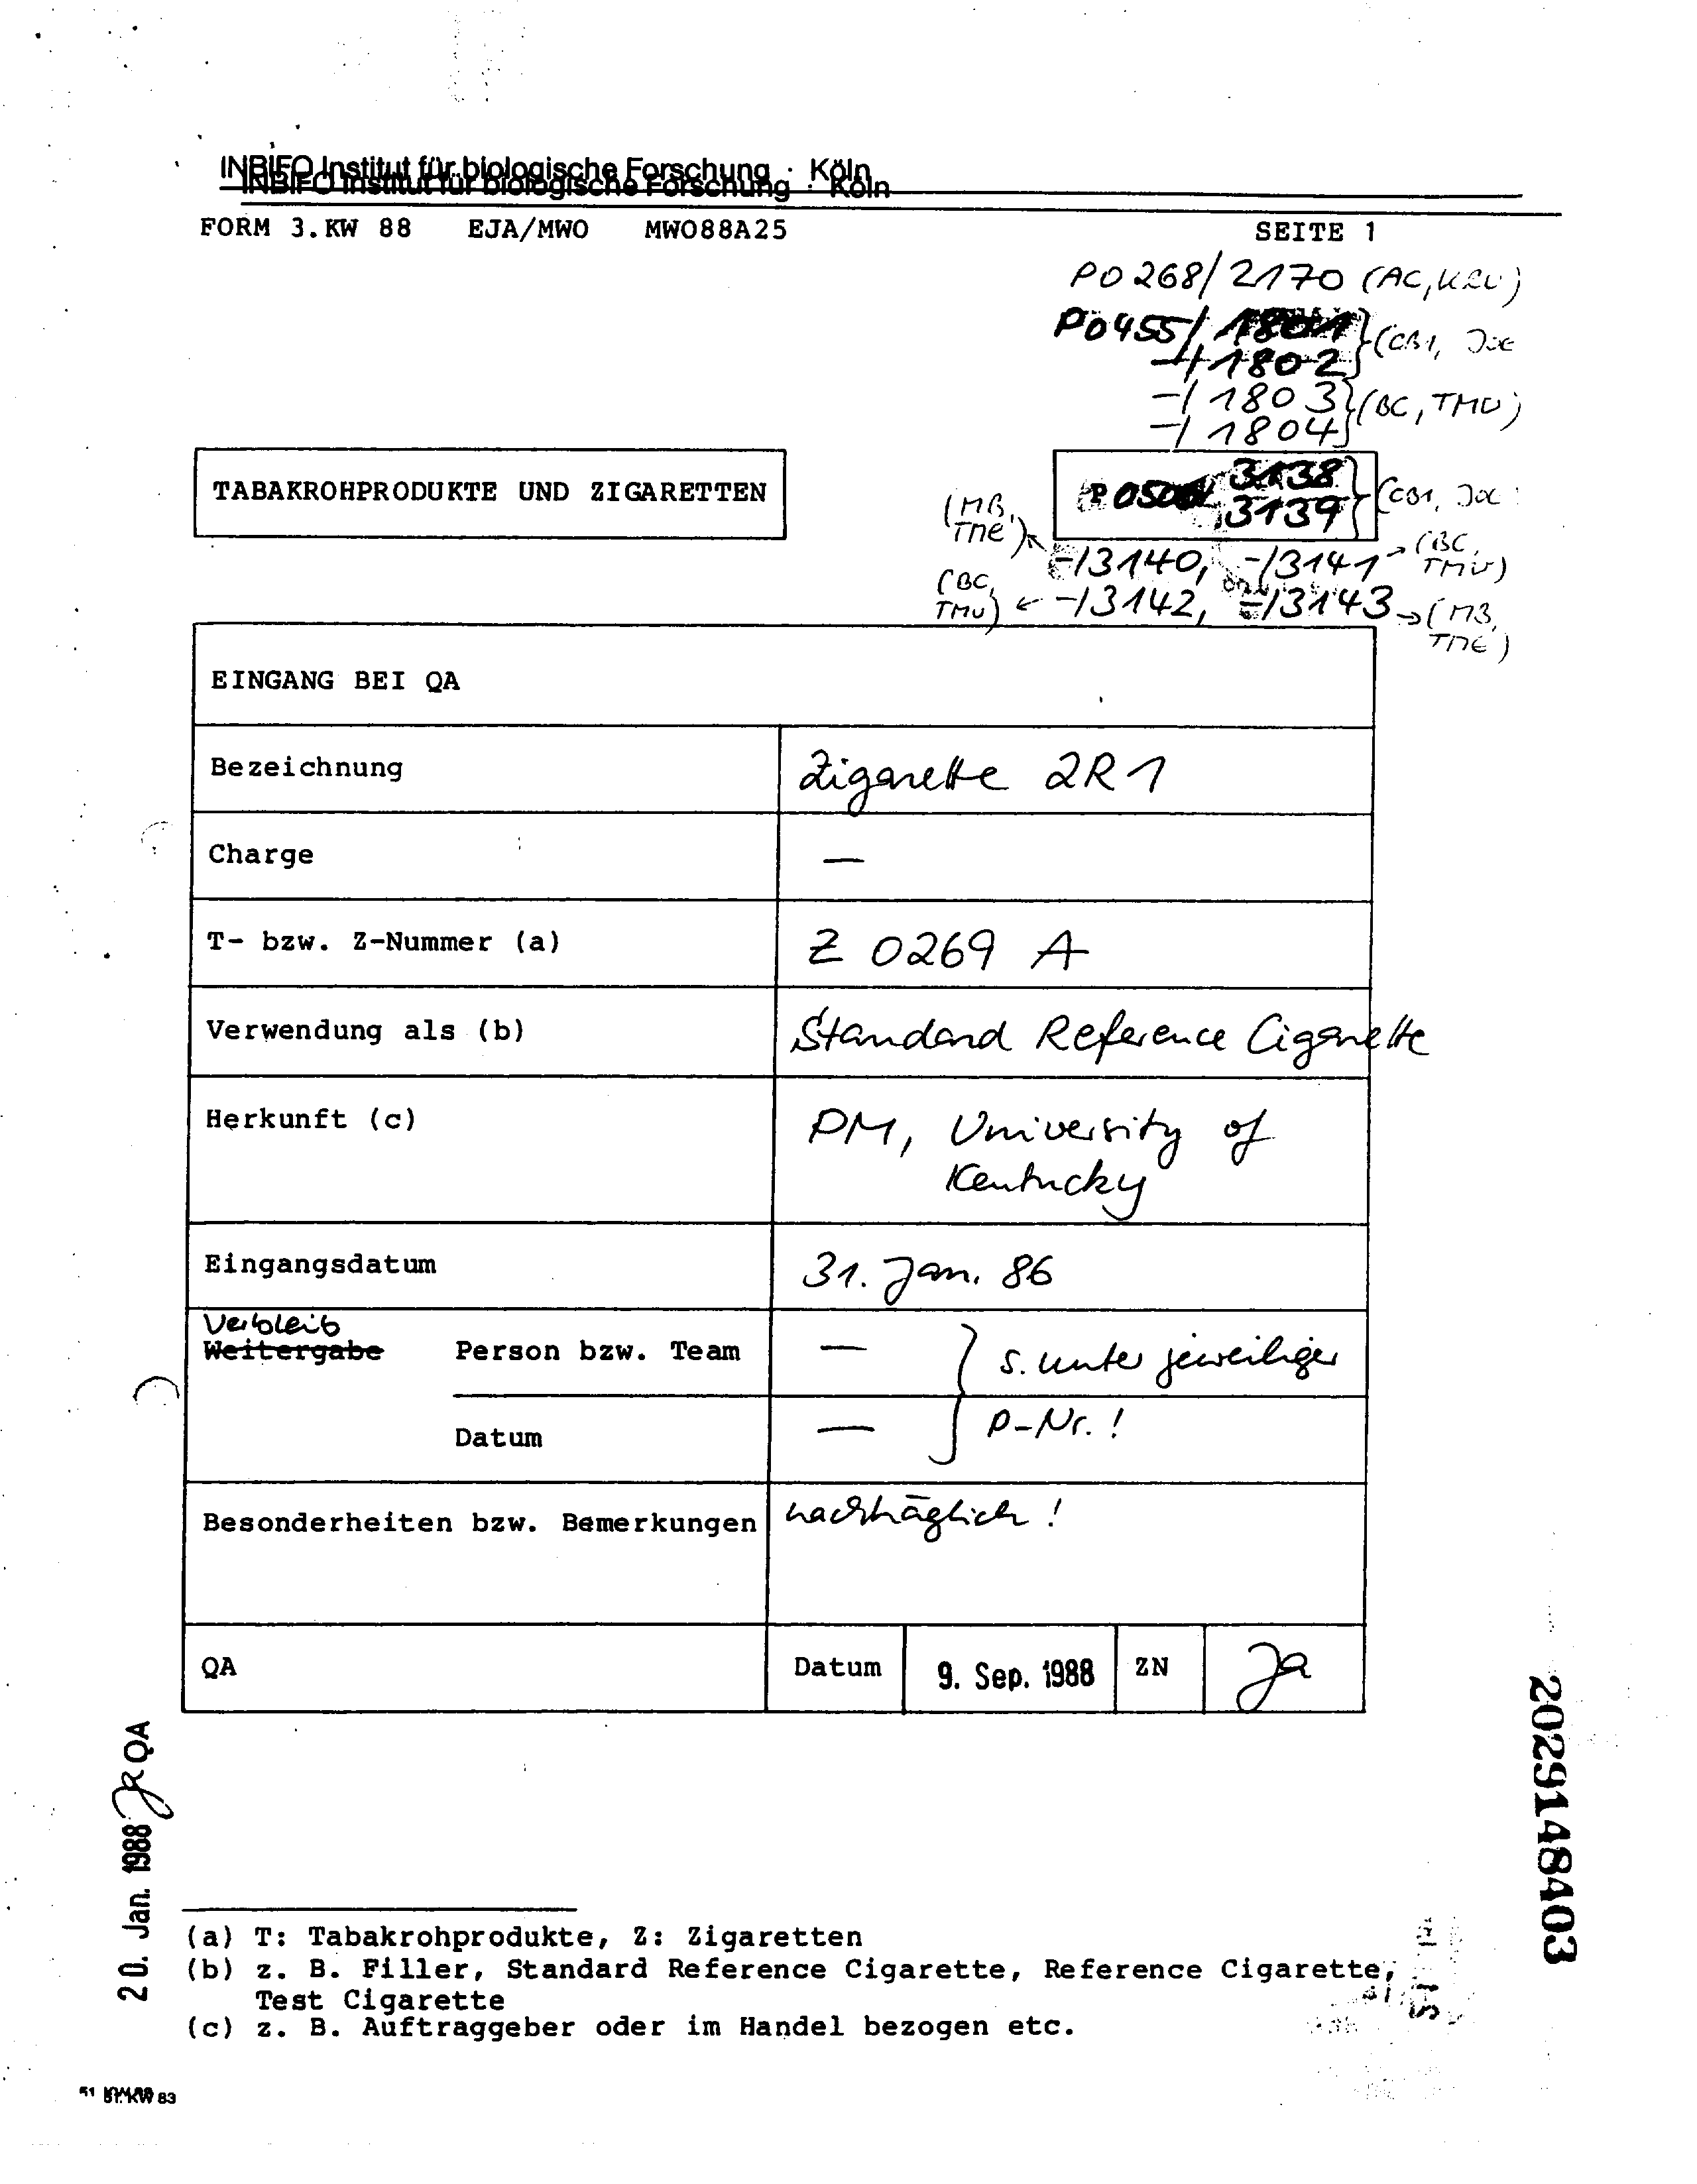 INBIFO Institut für biologische Forschung · Köln
INBIFO Institut für biologische Forschung · Köln
FORM 3.KW 88 EJA/MWO MWO88A25 SEITE 1
P0268/2170 (AC,
P0455/1801
-/1802 } (CB1,
-/1803
-/1804 } (BC, TMU)
TABAKROHPRODUKTE UND ZIGARETTEN
P 0500/ 3138
3139 } (CB1,
(MB, TME) -/3140, -/3141 → (BC, TMU)
(BC, TMU) ← -/3142, -/3143 → (MB, TME)
EINGANG BEI QA
Bezeichnung Zigarette 2R1
Charge —
T- bzw. Z-Nummer (a) Z 0269 A
Verwendung als (b) Standard Reference Cigarette
Herkunft (c) PM, University of
Kentucky
Eingangsdatum 31. Jan. 86
Verbleib
Weitergabe Person bzw. Team — } s. unter jeweiliger
Datum — P-Nr. !
Besonderheiten bzw. Bemerkungen nachträglich !
QA Datum 9. Sep. 1988 ZN Ja
20. Jan. 1988 QA
2029148403
(a) T: Tabakrohprodukte, Z: Zigaretten
(b) z. B. Filler, Standard Reference Cigarette, Reference Cigarette,
Test Cigarette
(c) z. B. Auftraggeber oder im Handel bezogen etc.
51 KW 83